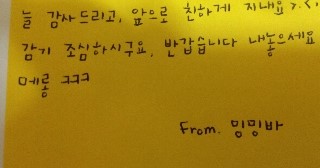 늘 감사드리고, 앞으로 친하게 지내요 >.<,
감기 조심하시구요, 반갑습니다 내놓으세요
메롱 ㅋㅋㅋ
From. 밍밍바